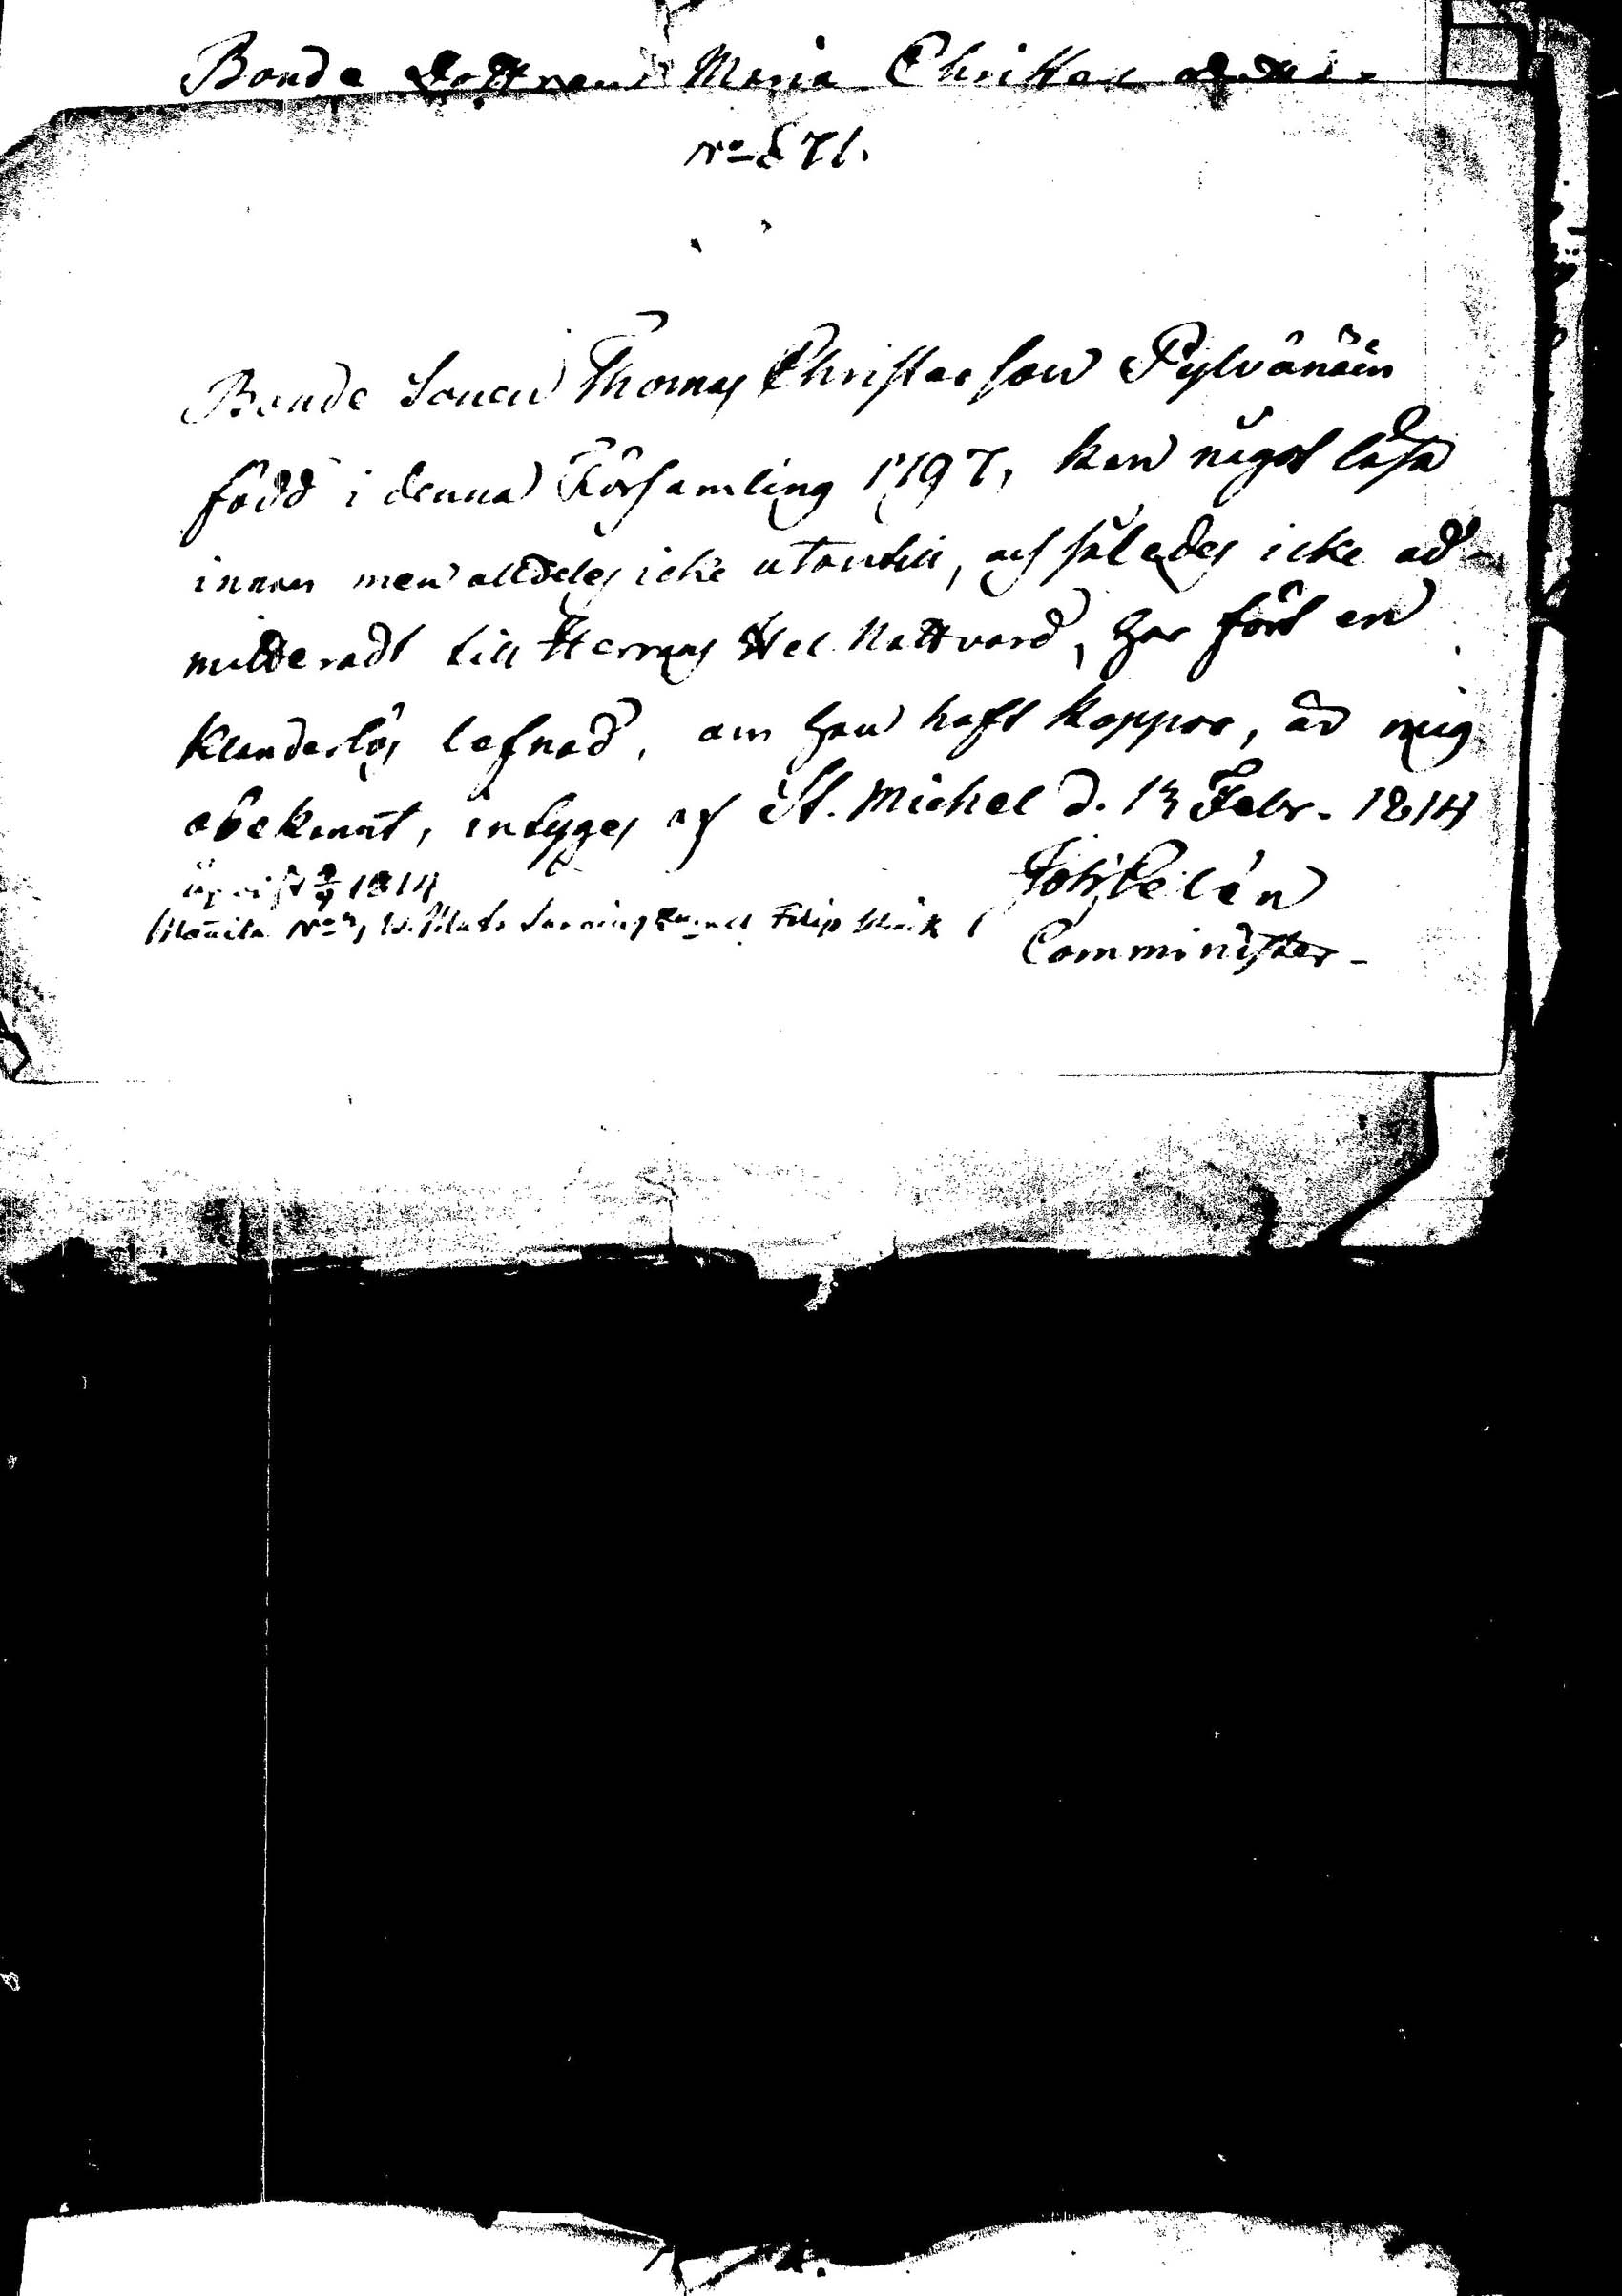 Bonde Dottren Maria Christers dotter
No 571.
Bonde Sonen Thomas Christersson Pylvänäin
född i denna Församling 1797, kan något läsa
innan men alldeles icke utantill, och således icke ad-
mitteradt till Herrans Hel. Nattvard, har fört en
klanderlös lefnad, om han haft koppor, är mig
obekant, intygas af St. Michel d. 13 Febr. 1814
Uppvist 1814
No Filip
Joh: Pelén
Comminister.